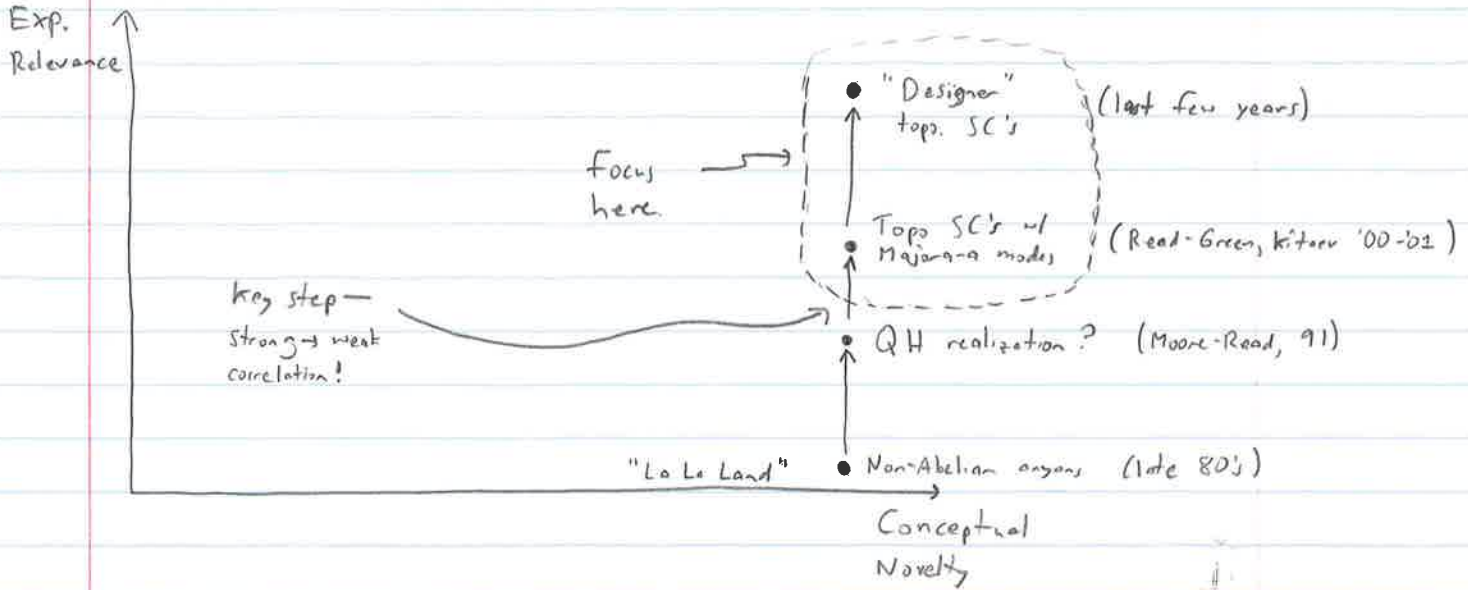 Exp.
Relevance
"Designer"
topo. SC's
(last few years)
focus
here.
Topo SC's w/
Majorana modes
(Read-Green, Kitaev '00-'01)
key step —
strong → weak
correlation!
QH realization? (Moore-Read, 91)
"La La Land"
Non-Abelian anyons (late 80's)
Conceptual
Novelty